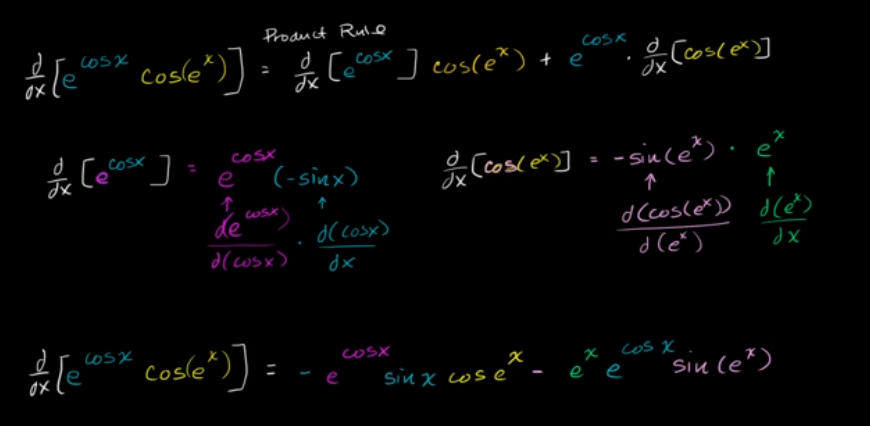 Product Rule
d/dx [e^cosx cos(e^x)] = d/dx [e^cosx] cos(e^x) + e^cosx · d/dx [cos(e^x)]
d/dx [e^cosx] = e^cosx (-sinx)
↑ ↑
de^cosx)/d(cosx) · d(cosx)/dx
d/dx [cos(e^x)] = -sin(e^x) · e^x
↑ ↑
d(cos(e^x))/d(e^x) d(e^x)/dx
d/dx [e^cosx cos(e^x)] = - e^cosx sinx cos e^x - e^x e^cosx sin(e^x)